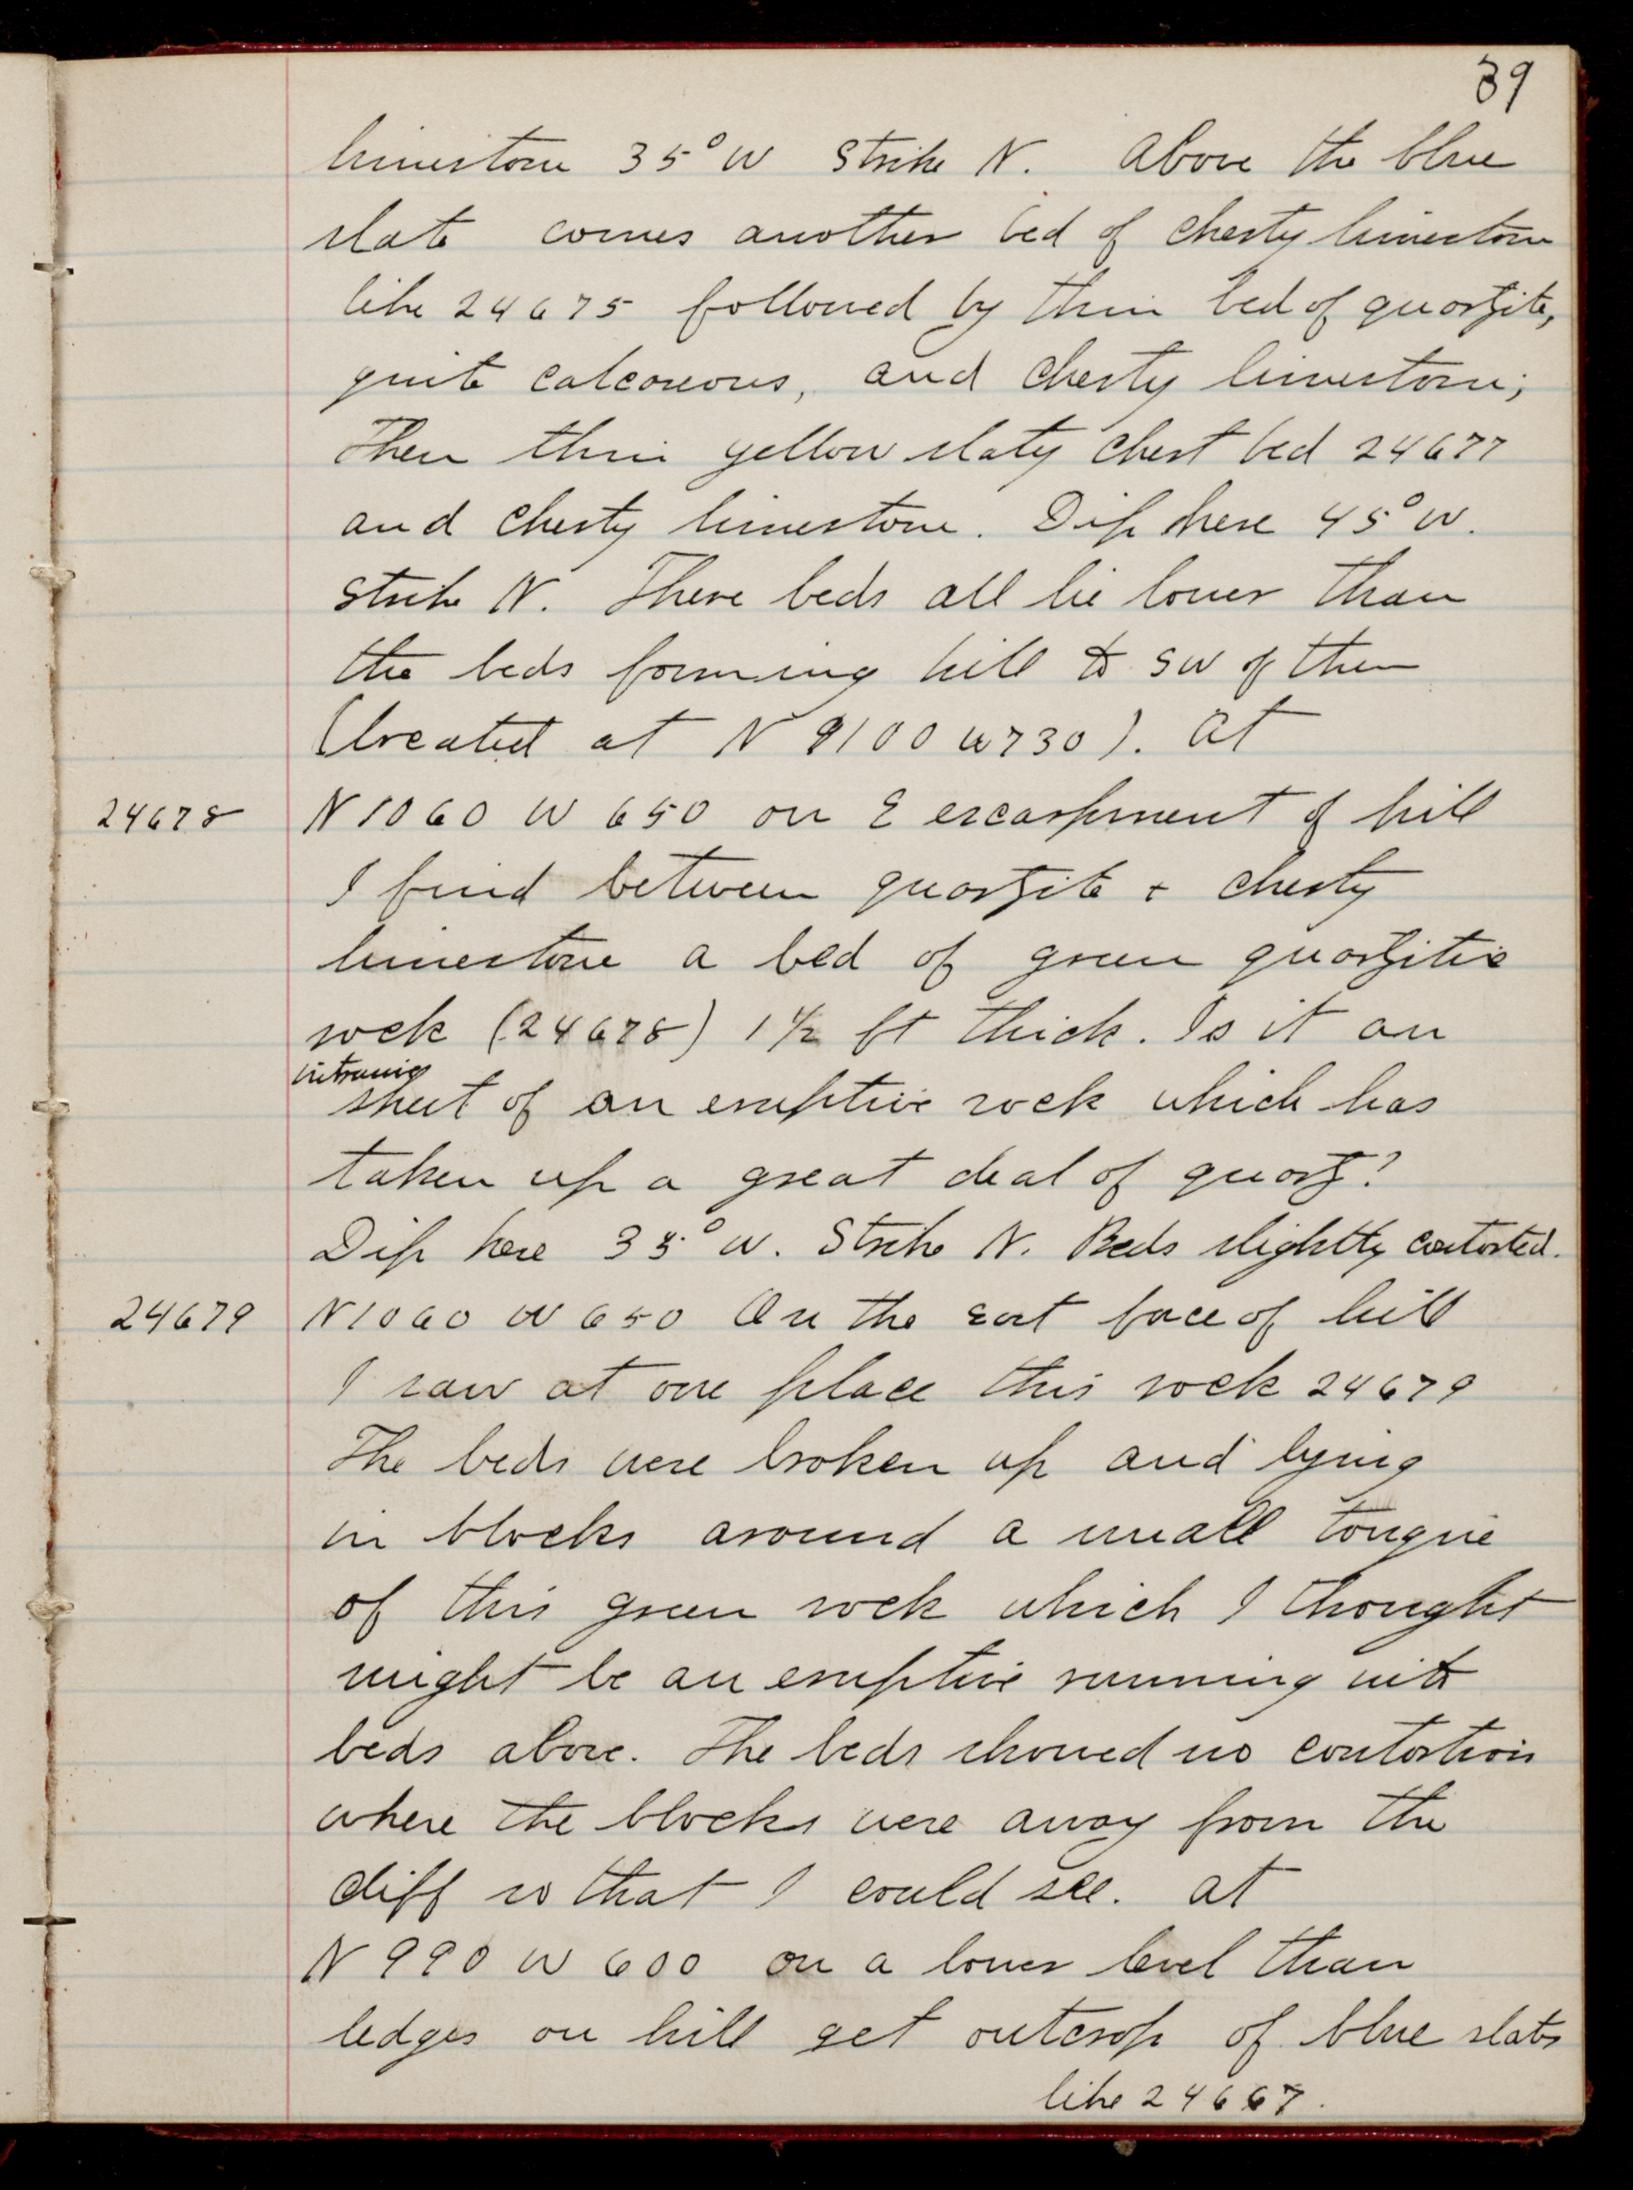 39
limestone 35° W Strike N. Above the blue
slate comes another bed of cherty limestone
like 24675 followed by thin bed of quartzite,
quite calcareous, and cherty limestone;
Then thin yellow slaty chert bed 24677
and cherty limestone. Dip here 45° W.
Strike N. These beds all lie lower than
the beds forming hill to SW of them
(located at N 9100 W730). At
24678 N 1060 W 650 on E escarpment of hill
I find between quartzite + cherty
limestone a bed of green quartzitic
rock (24678) 1 1/2 ft thick. Is it an
intrusive
sheet of an eruptive rock which has
taken up a great deal of quartz?
Dip here 35° W. Strike N. Beds slightly contorted.
24679 N1060 W 650 On the east face of hill
I saw at one place this rock 24679
The beds were broken up and lying
in blocks around a small tongue
of this green rock which I thought
might be an eruptive running into
beds above. The beds showed no contortion
where the blocks were away from the
cliff so that I could see. At
N 990 W 600 on a lower level than
ledges on hill get outcrop of blue slate
like 24667.